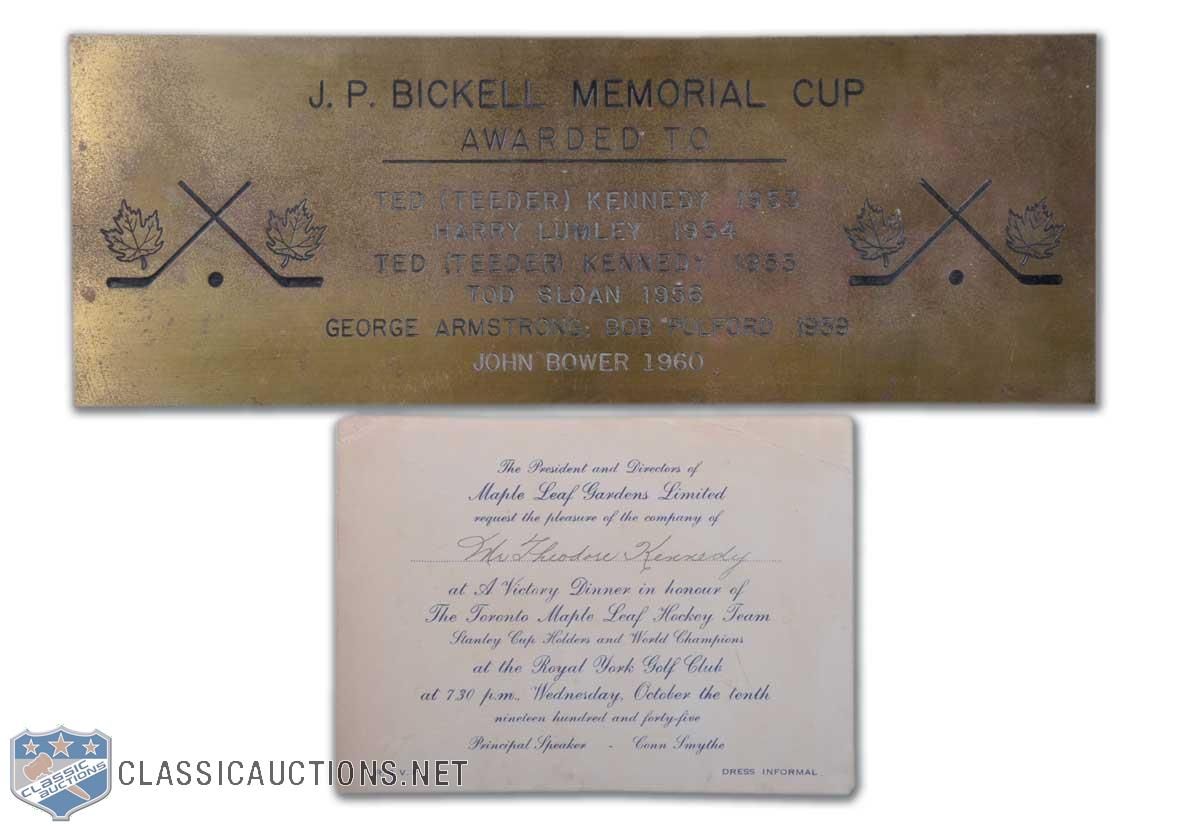 J. P. BICKELL MEMORIAL CUP
AWARDED TO
TED (TEEDER) KENNEDY 1953
HARRY LUMLEY 1954
TED (TEEDER) KENNEDY 1955
TOD SLOAN 1956
GEORGE ARMSTRONG; BOB PULFORD 1959
JOHN BOWER 1960
The President and Directors of
Maple Leaf Gardens Limited
request the pleasure of the company of
Mr Theodore Kennedy
at A Victory Dinner in honour of
The Toronto Maple Leaf Hockey Team
Stanley Cup Holders and World Champions
at the Royal York Golf Club
at 7.30 p.m., Wednesday, October the tenth
nineteen hundred and forty-five
Principal Speaker - Conn Smythe
DRESS INFORMAL
CLASSIC
AUCTIONS
CLASSICAUCTIONS.NET